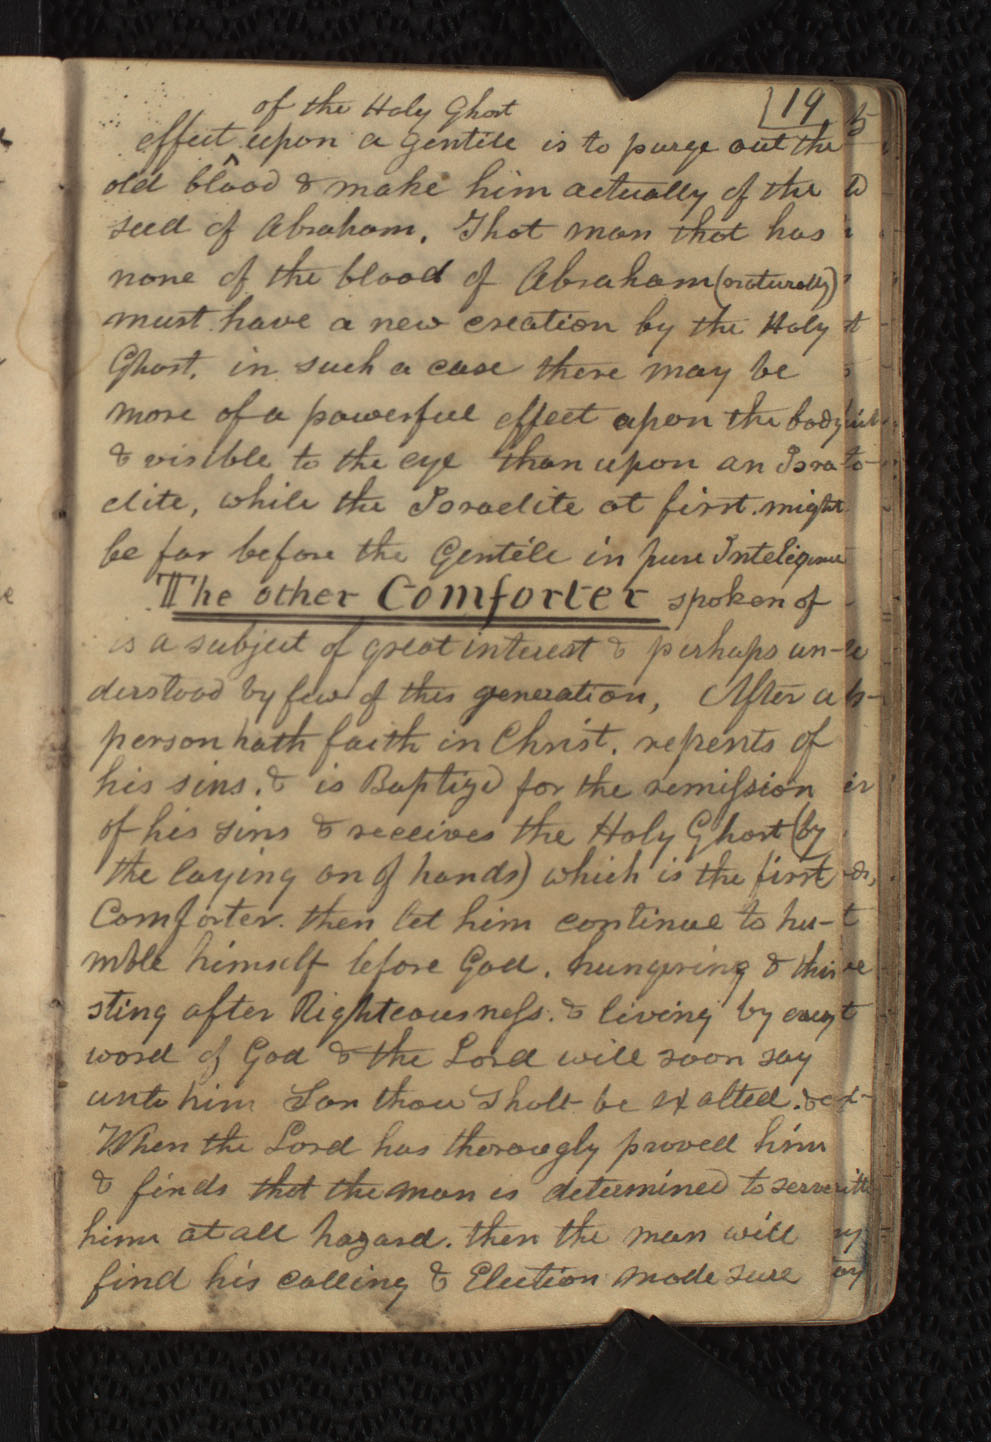 19
of the Holy Ghost
effect upon a gentile is to purge out the
old blood & make him actually of the
seed of Abraham. That man that has
none of the blood of Abraham (naturally)
must have a new creation by the Holy
Ghost, in such a case there may be
more of a powerful effect upon the body
& visible to the eye than upon an Isra-
elite, while the Israelite at first might
be far before the Gentile in pure Inteligence
The other Comforter spoken of
is a subject of great interest & perhaps un-
derstood by few of this generation, After a
person hath faith in Christ, repents of
his sins, & is Baptized for the remission
of his sins & receives the Holy Ghost (by
the laying on of hands) which is the first
Comforter. then let him continue to hu-
mble himself before God, hungering & thir
sting after Righteousness. & living by every
word of God & the Lord will soon say
unto him Son thou shalt be exalted. &c
When the Lord has thorougly proved him
& finds that the man is determined to serve
him at all hazard. then the man will
find his calling & Election made sure